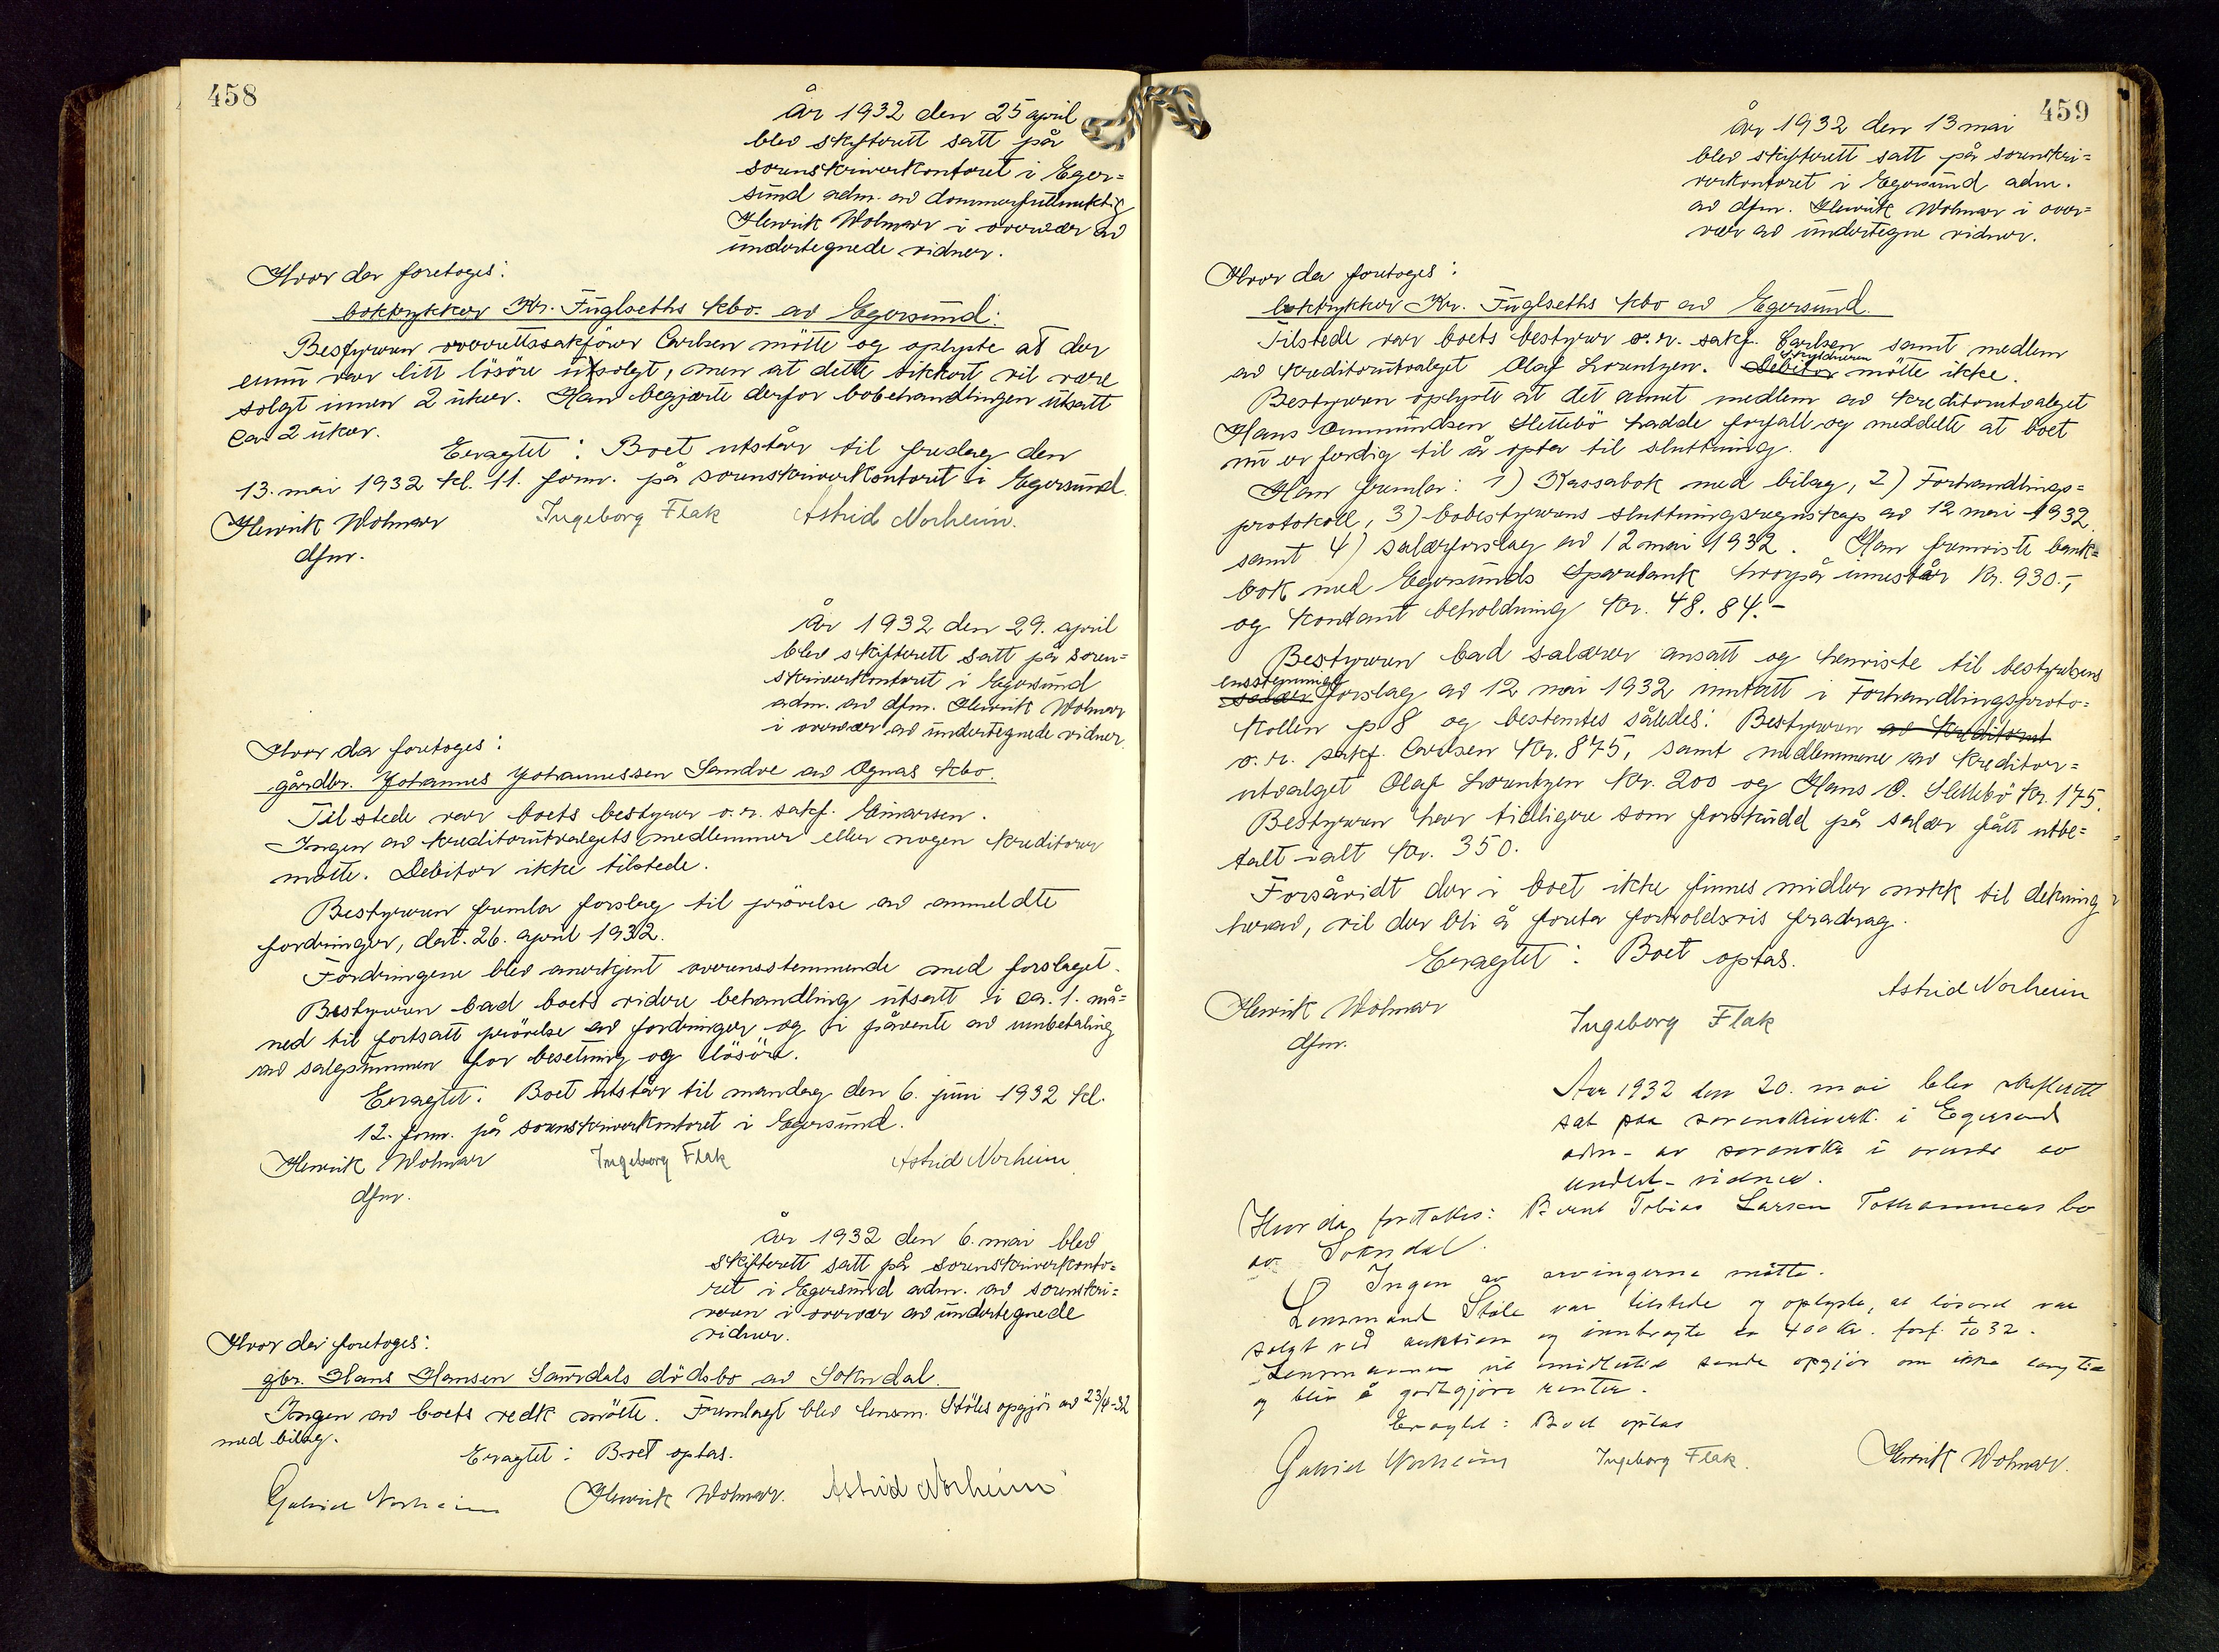 458
År 1932 den 25 april
blev skifterett satt på
sorenskriverkontoret i Eger=
sund adm. av dommerfullmektig
Henrik Wolmar i overvær av
undertegnede vidner.
Hvor da foretoges:
boktrykker Kr. Fuglseths kbo. av Egersund:
Bestyreren overrettssakförer Carlsen mötte og oplyste at der
ennu var litt lösöre usolgt, men at dette sikkert vil være
solgt innen 2 uker. Han begjærte derfor bobehandlingen utsatt
ca. 2 uker.
Eragtet: Boet utstår til fredag den
13. mai 1932 kl. 11. form. på sorenskriverkontoret i Egersund.
Henrik Wolmar Ingeborg Flak Astrid Norheim.
dfm.
År 1932 den 29. april
blev skifterett satt på soren=
skriverkontoret i Egersund
adm. av dfm. Henrik Wolmar
i overvær av undertegnede vidner.
Hvor da foretoges:
gårdbr. Johannes Johannessen Sandve av Ognas kbo.
Tilstede var boets bestyrer o.r. sakf. Einarsen.
Ingen av kreditorutvalgets medlemmer eller nogen kreditorer
mötte. Debitor ikke tilstede.
Bestyreren fremla forslag til prövelse av anmeldte
fordringer, dat. 26. april 1932.
Fordringene blev anerkjent overensstemmende med forslaget.
Bestyreren bad boets videre behandling utsatt i ca. 1. må=
ned til fortsatt prövelse av fordringer og i påvente av innbetaling
av salgsummen for besetning og lösöre.
Eragtet: Boet utstår til mandag den 6. juni 1932 kl.
12. form. på sorenskriverkontoret i Egersund.
Henrik Wolmar Ingeborg Flak Astrid Norheim
dfm.
År 1932 den 6. mai blev
skifterett satt på sorenskriverkonto=
ret i Egersund adm. av sorenskri=
veren i overvær av undertegnede
vidner.
Hvor da foretoges:
gbr. Hans Hansen Saurdals dödsbo av Sokndal.
Ingen av boets vedk mötte. Fremlagt blev lensm. Ståles opgjör av 23/4-32
med bilag.
Eragtet: Boet optas.
Gabriel Norheim Henrik Wolmar. Astrid Norheim
459
År 1932 den 13 mai
blev skifterett satt på sorenskri=
verkontoret i Egersund adm.
av dfm. Henrik Wolmar i over=
vær av undertegne vidner.
Hvor da foretoges:
boktrykker Kr. Fuglseths kbo av Egersund.
Tilstede var boets bestyrer o.r. sakf. Carlsen samt medlem
av kreditorutvalget Olaf Lorentzen. Debitor mötte ikke.
Bestyreren oplyste at det annet medlem av kreditorutvalget
Hans Ommundsen Slettebö hadde forfall og meddelte at boet
nu er ferdig til å opta til sluttning.
Han fremla: 1) Kassabok med bilag, 2) Forhandlings=
protokoll, 3) bobestyrerens sluttningsregnskap av 12 mai 1932
samt 4) salærforslag av 12 mai 1932. Han fremviste bank=
bok med Egersunds Sparebank hvorpå innestår Kr. 930.-,
og kontant beholdning kr. 48.84.-
Bestyreren bad salærer ansatt og henviste til bestyrelsens
enstemmige
salær forslag av 12 mai 1932 inntatt i Forhandlingsproto=
kollen p 8 og bestemtes således: Bestyreren av kreditorut
o.r. sakf. Carlsen Kr. 875, samt medlemmene av kreditor=
utvalget Olaf Lorentzen Kr. 200 og Hans O. Slettebö Kr. 175.
Bestyreren har tidligere som forskudd på salær fått utbe=
talt ialt Kr. 350.
Forsåvidt der i boet ikke finnes midler nokk til dekning
herav, vil der bli å foreta forholdsvis fradrag.
Eragtet: Boet optas.
Astrid Norheim
Henrik Wolmar Ingeborg Flak
dfm.
Aar 1932 den 20. mai blev skifterett
sat paa sorenskriverk. i Egersund
adm. av sorenskr i overvær av
undert. vidner.
Hvor da foretokes: Bernt Tobias Larsen Tothammers bo
av Sokndal.
Ingen av arvingerne mötte.
Lensmand Ståle var tilstede og oplyste, at lösöret var
solgt ved auktion og innbragte ca 400 Kr. forf. 1/10 32.
Lensmannen vil imidlertid sende opgjör om ikke lang tid
og blir å godtgjöre renter.
Eragtet: Boet optas
Gabriel Norheim Ingeborg Flak. Henrik Wolmar.